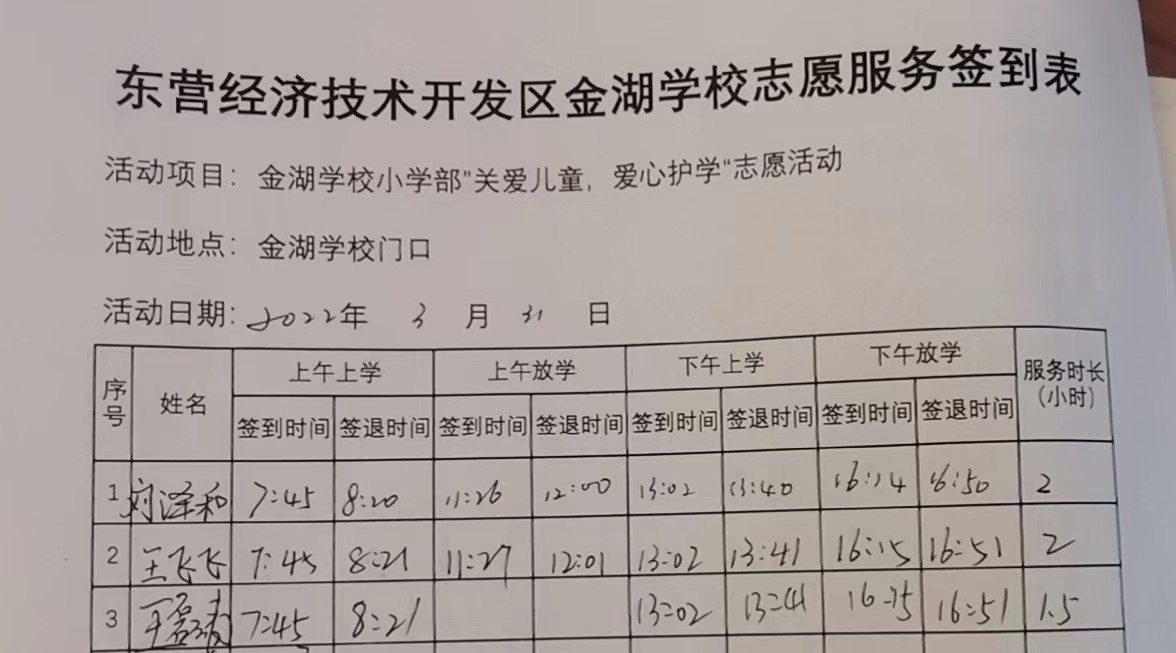 东营经济技术开发区金湖学校志愿服务签到表
活动项目：金湖学校小学部"关爱儿童，爱心护学"志愿活动
活动地点：金湖学校门口
活动日期：2022年 3 月 31 日
序号 姓名 上午上学 上午放学 下午上学 下午放学 服务时长（小时）
签到时间 签退时间 签到时间 签退时间 签到时间 签退时间 签到时间 签退时间
1 刘泽和 7:45 8:20 11:26 12:00 13:02 13:40 16:14 16:50 2
2 王飞飞 7:45 8:21 11:27 12:01 13:02 13:41 16:15 16:51 2
3 7:45 8:21 13:02 13:41 16:15 16:51 1.5